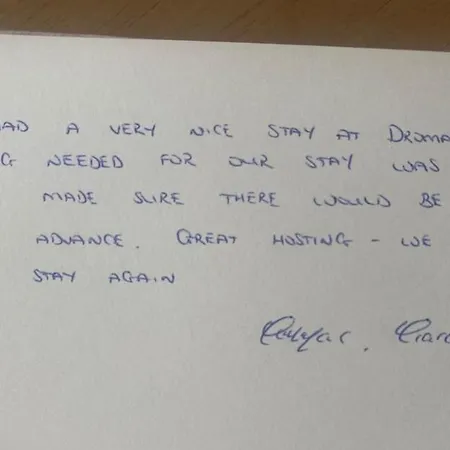 AD A VERY NICE STAY AT DROMA
G NEEDED FOR OUR STAY WAS
MADE SURE THERE WOULD BE
ADVANCE. GREAT HOSTING - WE
STAY AGAIN